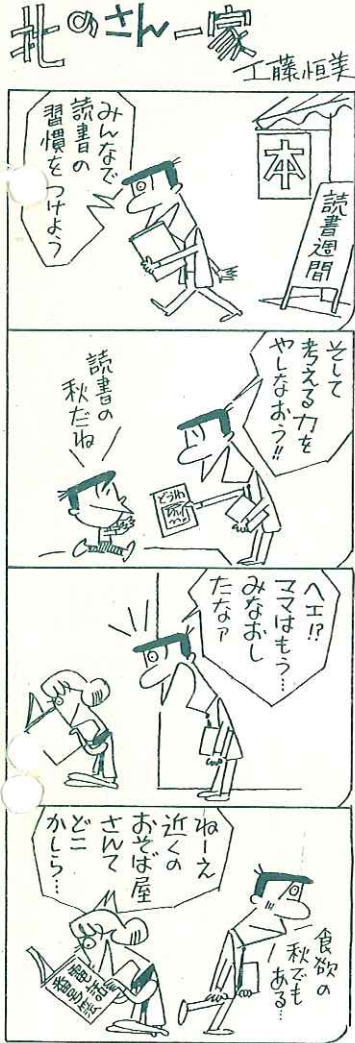 北のさん一家
工藤恒美
本
読書週間
みんなで
読書の
習慣を
つけよう
そして
考える力を
やしなおう!!
読書の
秋だね
どうわ
ヘエ!?
ママはもう…
みなおし
たなァ
ねーえ
近くの
おそば屋
さんて
どこ
かしら…
電話
番号帳
食欲の
秋でも
ある…